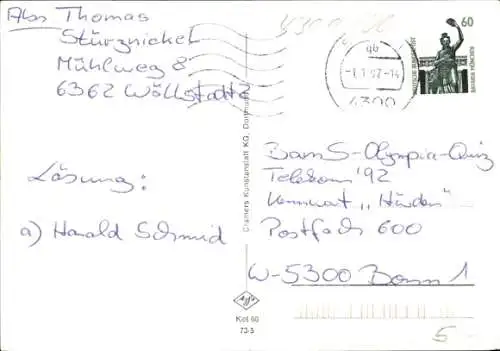 Abs Thomas
Stürznickel
Mühlweg 8
6362 Wöllstadt 2
Lösung:
a) Harald Schmid
Cramers Kunstanstalt KG, Dortmund
Kiot 60
73-5
-1.1.92-14
4300
60
DEUTSCHE BUNDESPOST
BAVARIA MÜNCHEN
BamS-Olympia-Quiz
Telekom '92
Kennwort "Hürden"
Postfach 600
W-5300 Bonn 1
5-